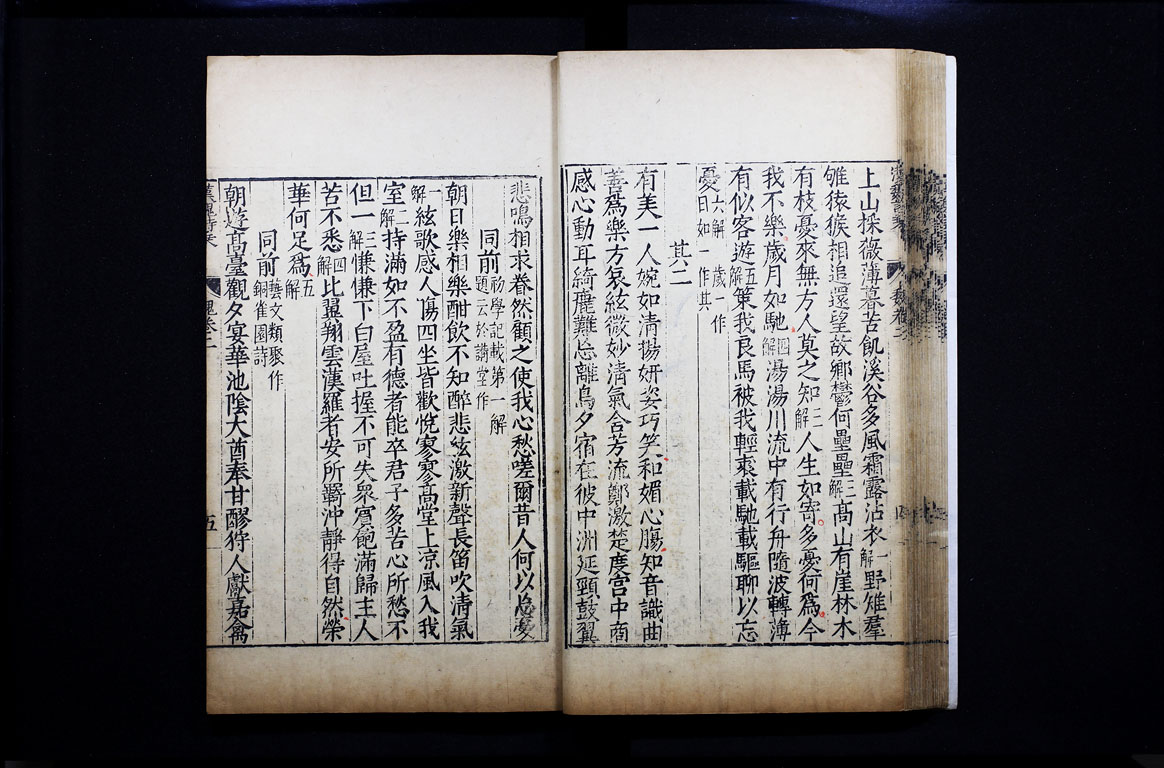 上山採薇薄暮苦飢溪谷多風霜露沾衣一解野雉羣
雊猿猴相追還望故鄉鬱何壘壘二解高山有崖林木
有枝憂來無方人莫之知三解人生如寄多憂何爲今
我不樂歲月如馳四解湯湯川流中有行舟隨波轉薄
有似客遊五解策我良馬被我輕裘載馳載驅聊以忘
憂六解歲一作
日如一作其
其二
有美一人婉如清揚妍姿巧笑和媚心腸知音識曲
善爲樂方哀絃微妙清氣含芳流鄭激楚度宮中商
感心動耳綺麗難忘離鳥夕宿在彼中洲延頸鼓翼
悲鳴相求眷然顧之使我心愁嗟爾昔人何以忘憂
同前初學記載第一解
題云於講堂作
朝日樂相樂酣飲不知醉悲絃激新聲長笛吹清氣
一解絃歌感人傷四坐皆歡悅寥寥高堂上凉風入我
室二解持滿如不盈有德者能卒君子多苦心所愁不
但一三解慊慊下白屋吐握不可失衆賓飽滿歸主人
苦不悉四解比翼翔雲漢羅者安所羈沖靜得自然榮
華何足爲五解
同前藝文類聚作
銅雀園詩
朝遊高臺觀夕宴華池陰大酋奉甘醪狩人獻嘉禽
魏卷二
五